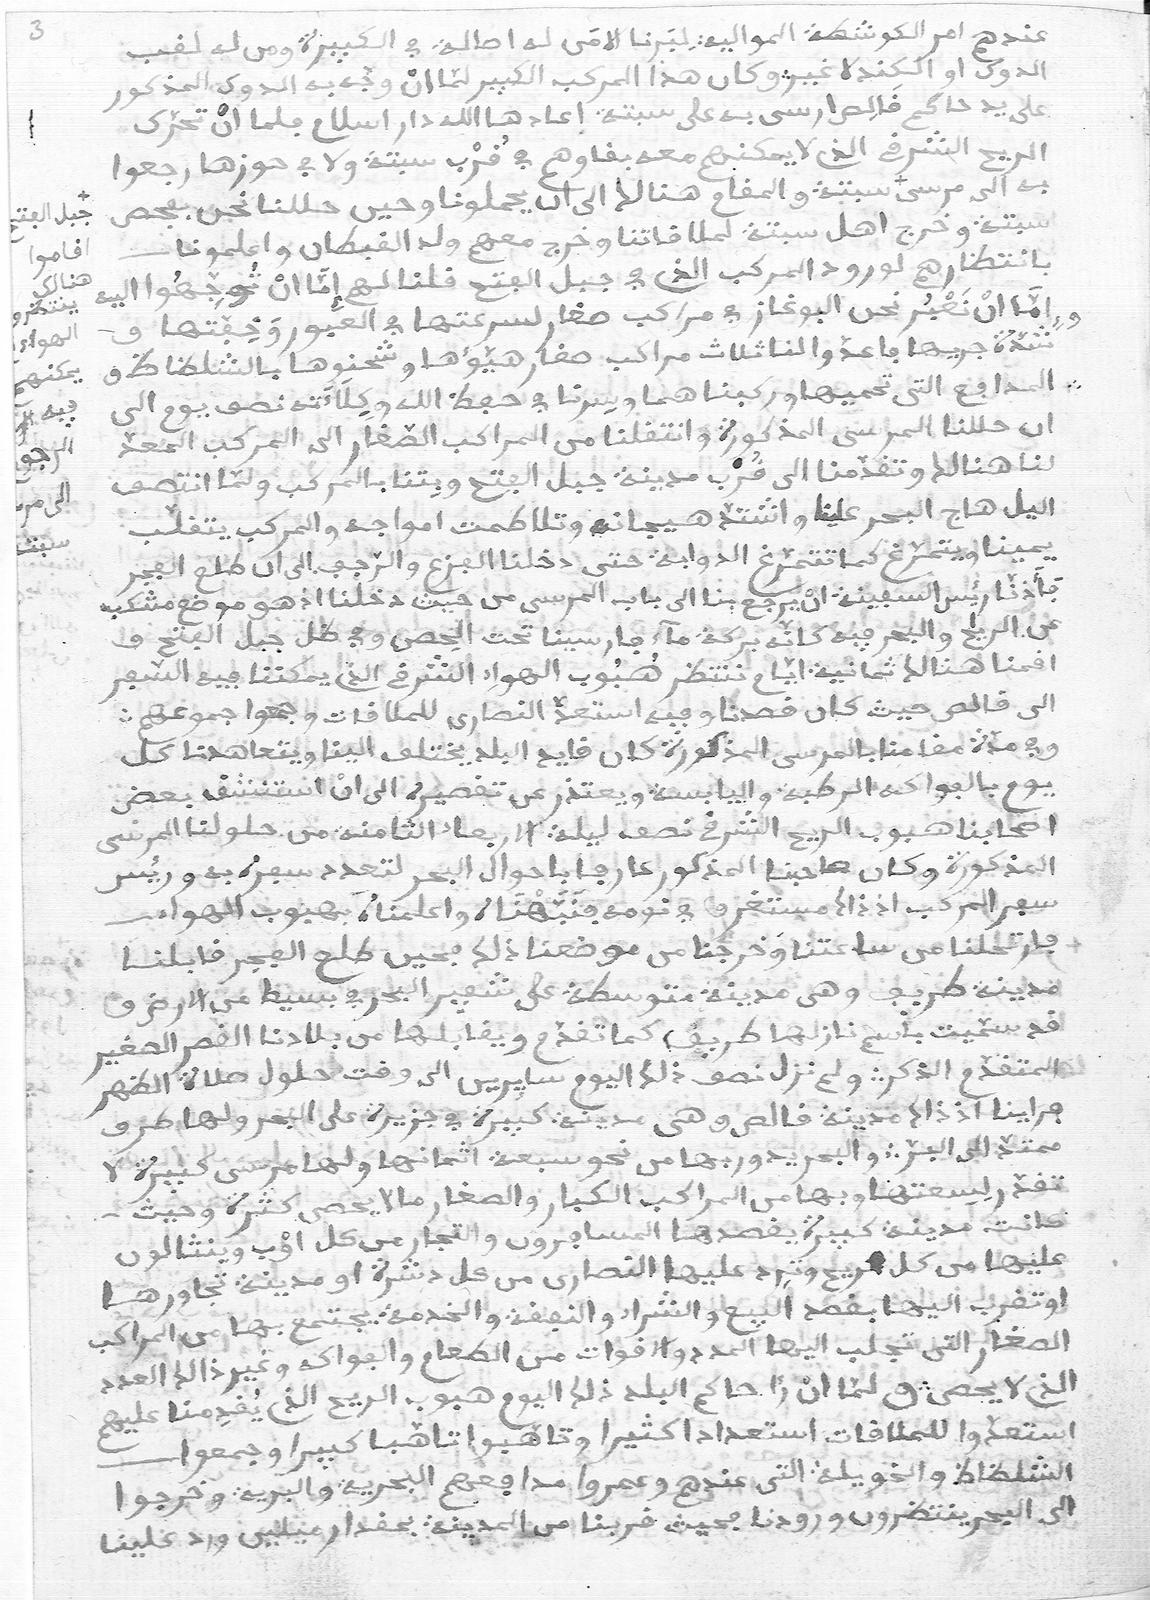 3
عندهم امر الكوشطة الموالية لبرنا الا من له اصالة في الكبيرة ومن له لقب
الدوك او الكند لا غير وكان هذا المركب الكبير لما ان وجه به الدوك المذكور
على يد حاكم قالص ارسى به على سبتة اعادها الله دار اسلام فلما ان تحرك
الريح الشرقي الذي لا يمكنهم معه بقاوهم في قرب سبتة ولا في حوزها رجعوا
به الى مرسى سبتة والمقام هنالك الى ان يحملونا وحين حللنا نحن بفحص
سبتة وخرج اهل سبتة لملاقاتنا وخرج معهم ولد القبطان واعلمونا
بانتظارهم لورود المركب الذي في جبل الفتح قلنا لهم إمّا انْ تُوجِّهُوا اليه
وإمّا انْ نَعْبُر نحن البوغاز في مراكب صغار لسرعتها في العبور وَخِفّتها و
شدّة جريها فاعدّوا لنا ثلاث مراكب صغار هيّؤها وشحنوها بالشلظاظ و
المدافع التي تحميها وركبناهما وسرنا في حفظ الله وكِلَاءَته نصف يوم الى
ان حللنا المرسى المذكورة وانتقلنا من المراكب الصّغار الى المركب المعدّ
لنا هنالك وتقدّمنا الى قُرْب مدينة جبل الفتح وبِتنا بالمركب ولمّا انتصف
اليل هاج البحر علينا واشتدّ هيجانه وتلاطمت امواجه والمركب يتقلّب
يمينا ويتمرّغ كما تتمرّغ الدوابة حتى دخلنا الفزع والرّجف الى ان طلع الفجر
فأذنّا رئيس السفينة انْ يرجع بنا الى باب المرسى من حيث دخلنا اذ هو موضع مشكب
عن الريح والبحر فيه كانّه بركة مآء فارسينا تحت الحِصن وفي ظل جبل الفتح و
اقمنا هنالك ثمانية ايّام ننتظر هُبُوب الهواء الشرقي الذي يمكننا فيه السّفر
الى قالص حيث كان قصدنا وفيه استعدّ النصارى للملاقات وجمعوا جموعهم
وفي مدّة مقامنا بالمرسى المذكورة كان قايد البلد يختلف الينا ويتعاهدنا كل
يوم بالفواكه الرطبة واليابسة ويعتذر عن تقصيره الى انْ استنشق بعض
اصحابنا هبوب الريح الشرقي نصف ليلة الاربعاء الثامنة من حلولنا المرسى
المذكورة وكان صاحبنا المذكور عارفا باحوال البحر لتعدد سفره به ورئيس
سفر المركب اذ ذاك مستغرق في نومه فَنَبَّهْنَاهُ واعلمناهُ بهبوب الهواء
فارتحلنا من ساعتنا وَخرجنا من موضعنا ذلك فحين طلع الفجر قابلنا
مدينة طريف وهي مدينة متوسطة على شفير البحر في بسيط من الارض و
قد سمّيت باسم نازلها طريف كما تقدّم ويقابلها من بلادنا القصر الصغير
المتقدّم الذكر ولم نزل نصف ذلك اليوم سايرين الى وقت حلول صلاة الظهر
فراينا اذ ذاك مدينة قالص وهي مدينة كبيرة في جزيرة على البحر ولها طرف
ممتدّ الى البرّ والبحر يدور بها من نحو سبعة اثمانها ولها مرسى كبيرة لا
تقدّر لِسِعتها وبها من المراكب الكبار والصغار ما لا يحصى كثرة وحيث
كانت مدينة كبيرة يقصدها المسافرون والتجار من كل اوْب وينثالون
عليها من كل ريح وترد عليها النصارى من كل دشرة او مدينة تجاورها
او تقرب اليها بقصد البيع والشراء والنفقة والخدمة يجتمع بها من المراكب
الصغار التي تجلب اليها المدد والاقوات من الطعام والفواكه وغير ذالك العدد
الذي لا يحصى ولمّا انْ رءا حاكم البلد ذلك اليوم هبوب الريح الذي يُقدمنا عليهم
استعدّوا للملاقات استعدادا كثيرا وتاهّبوا تاهّبا كبيرا وجمعوا
الشلظاظ والخويلة التي عندهم وعمروا مدافعهم البحرية والبرية وخرجوا
الى البحر ينتظرون ورودنا فحيث قربنا من المدينة بمقدار ميلين ورد علينا
جبل الفتح
اقاموا
هنالك
ينتظرو
الهواء
يمكنهم
فيه
الرجو
الى مر
سبتة